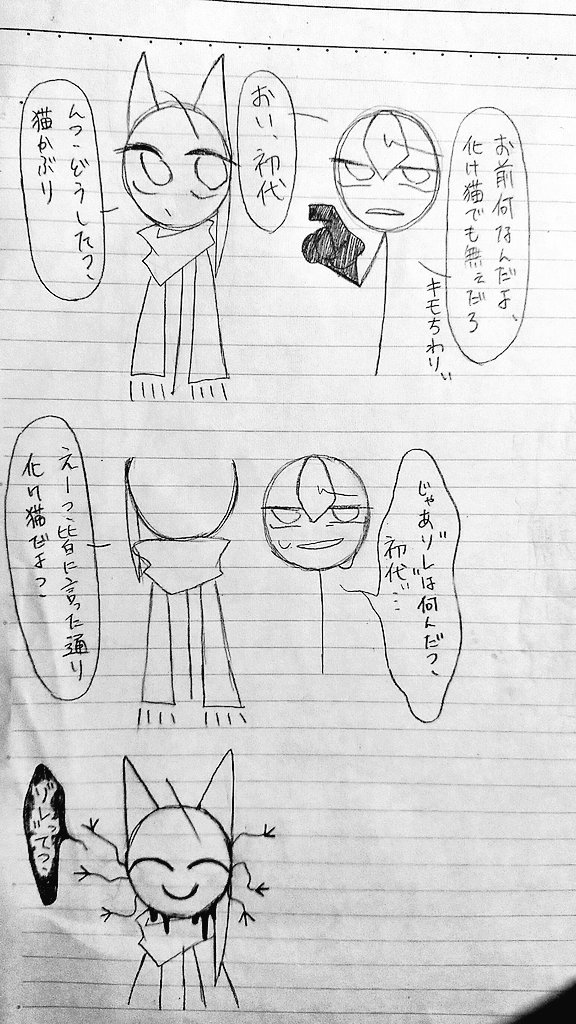 おい、初代
んっ、どうしたっ、
猫かぶり
お前何なんだよ、
化け猫でも無ぇだろ
キモちわりぃ
えーっ、皆に言った通り
化け猫だよっ
じゃあゾレは何んだっ、
初代…
ゾレ゛ってっ、